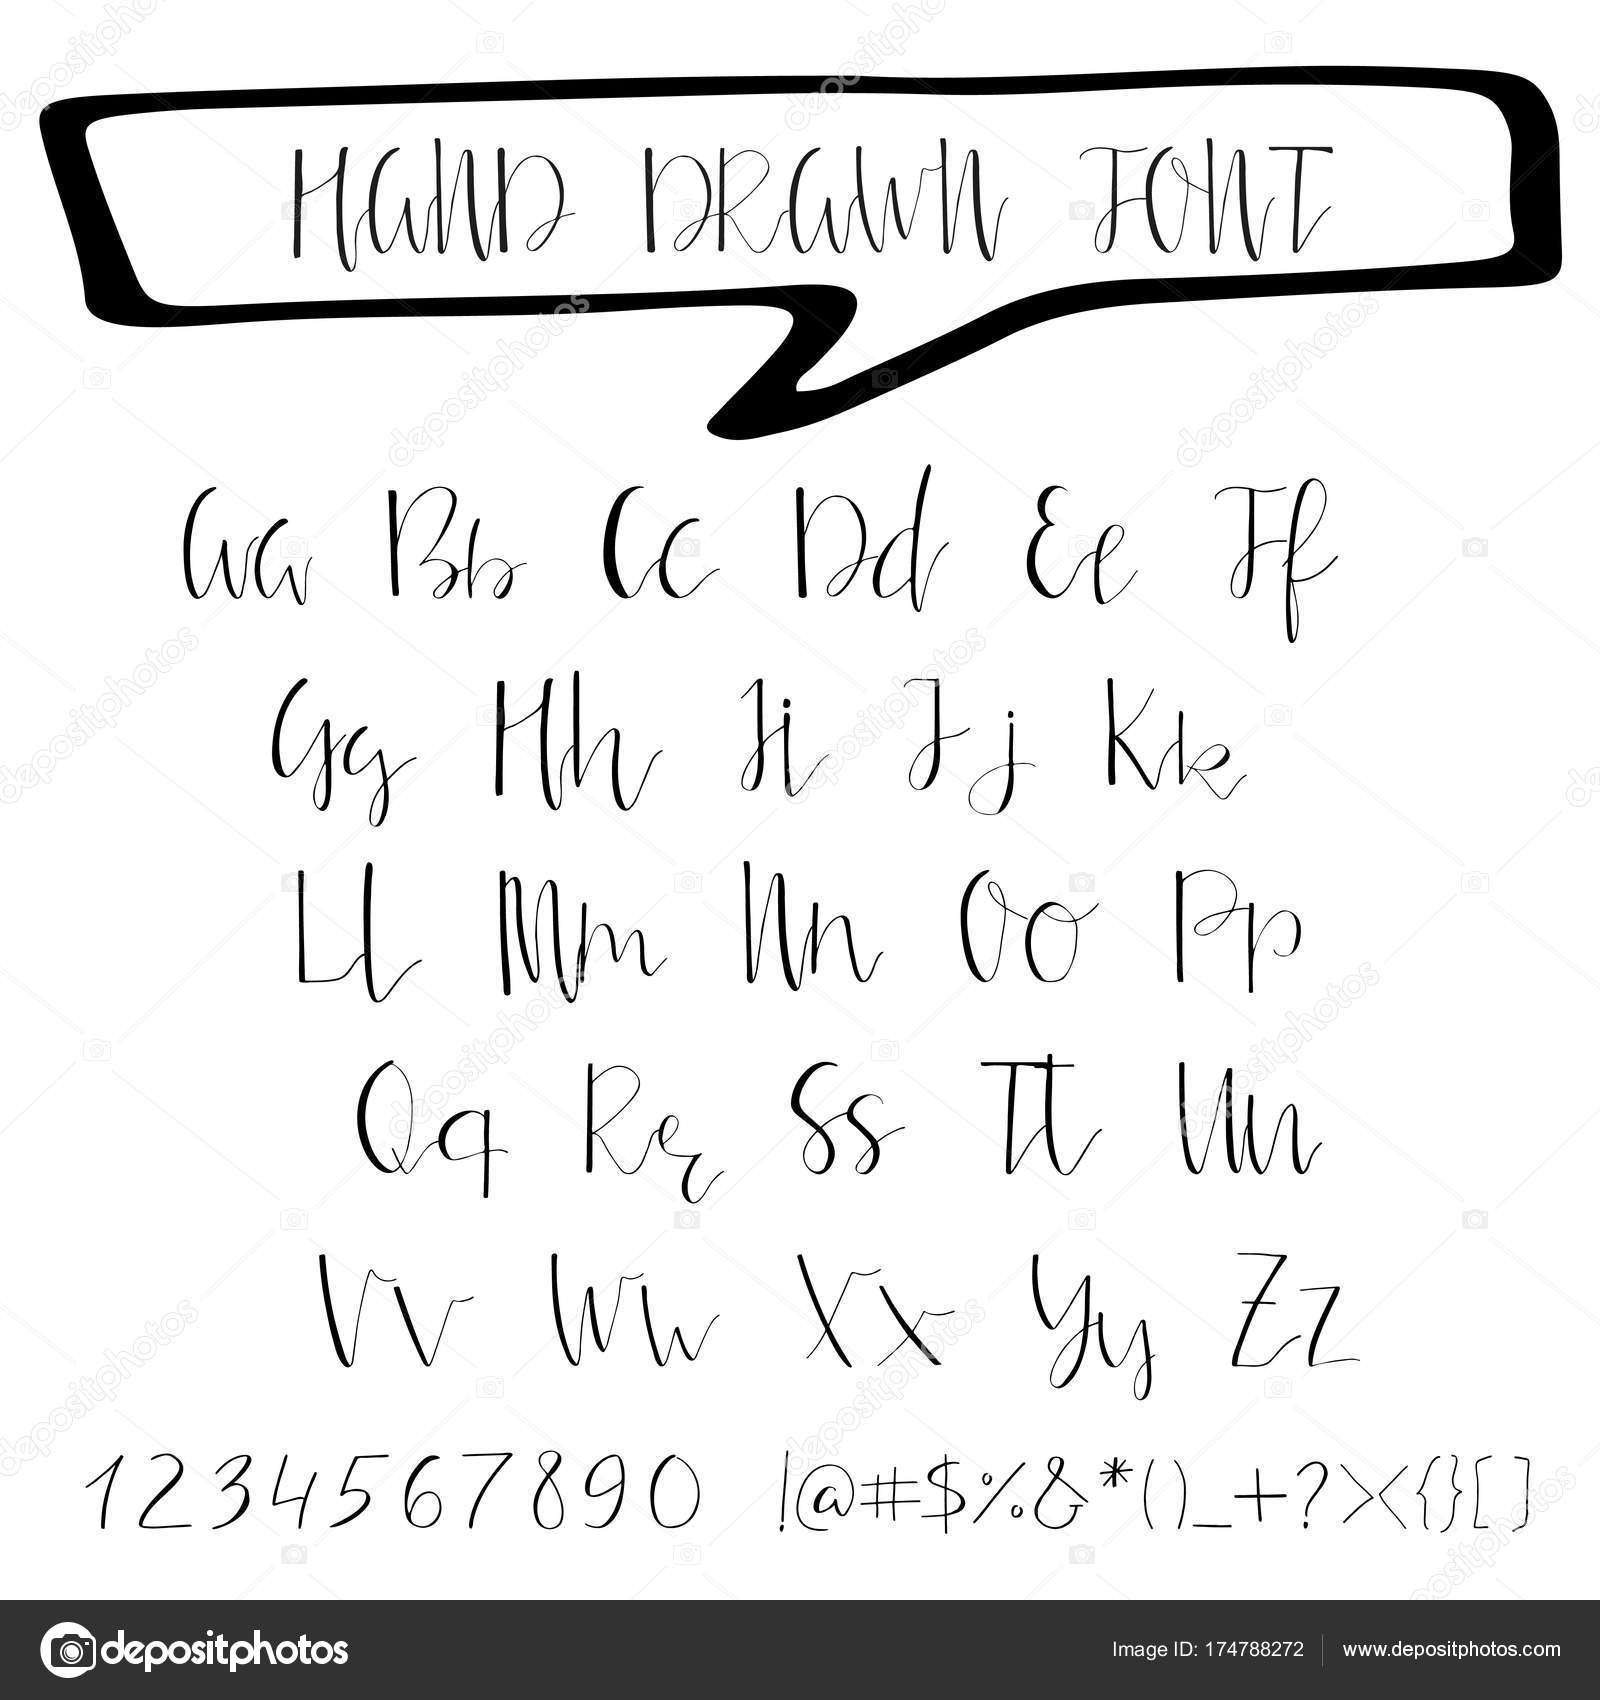 HAND DRAWN FONT
Aa Bb Cc Dd Ee Ff
Gg Hh Ii Jj Kk
Ll Mm Nn Oo Pp
Qq Rr Ss Tt Uu
Vv Ww Xx Yy Zz
1234567890 !@#$%&*()_+?><{}[]
depositphotos Image ID: 174788272 www.depositphotos.com